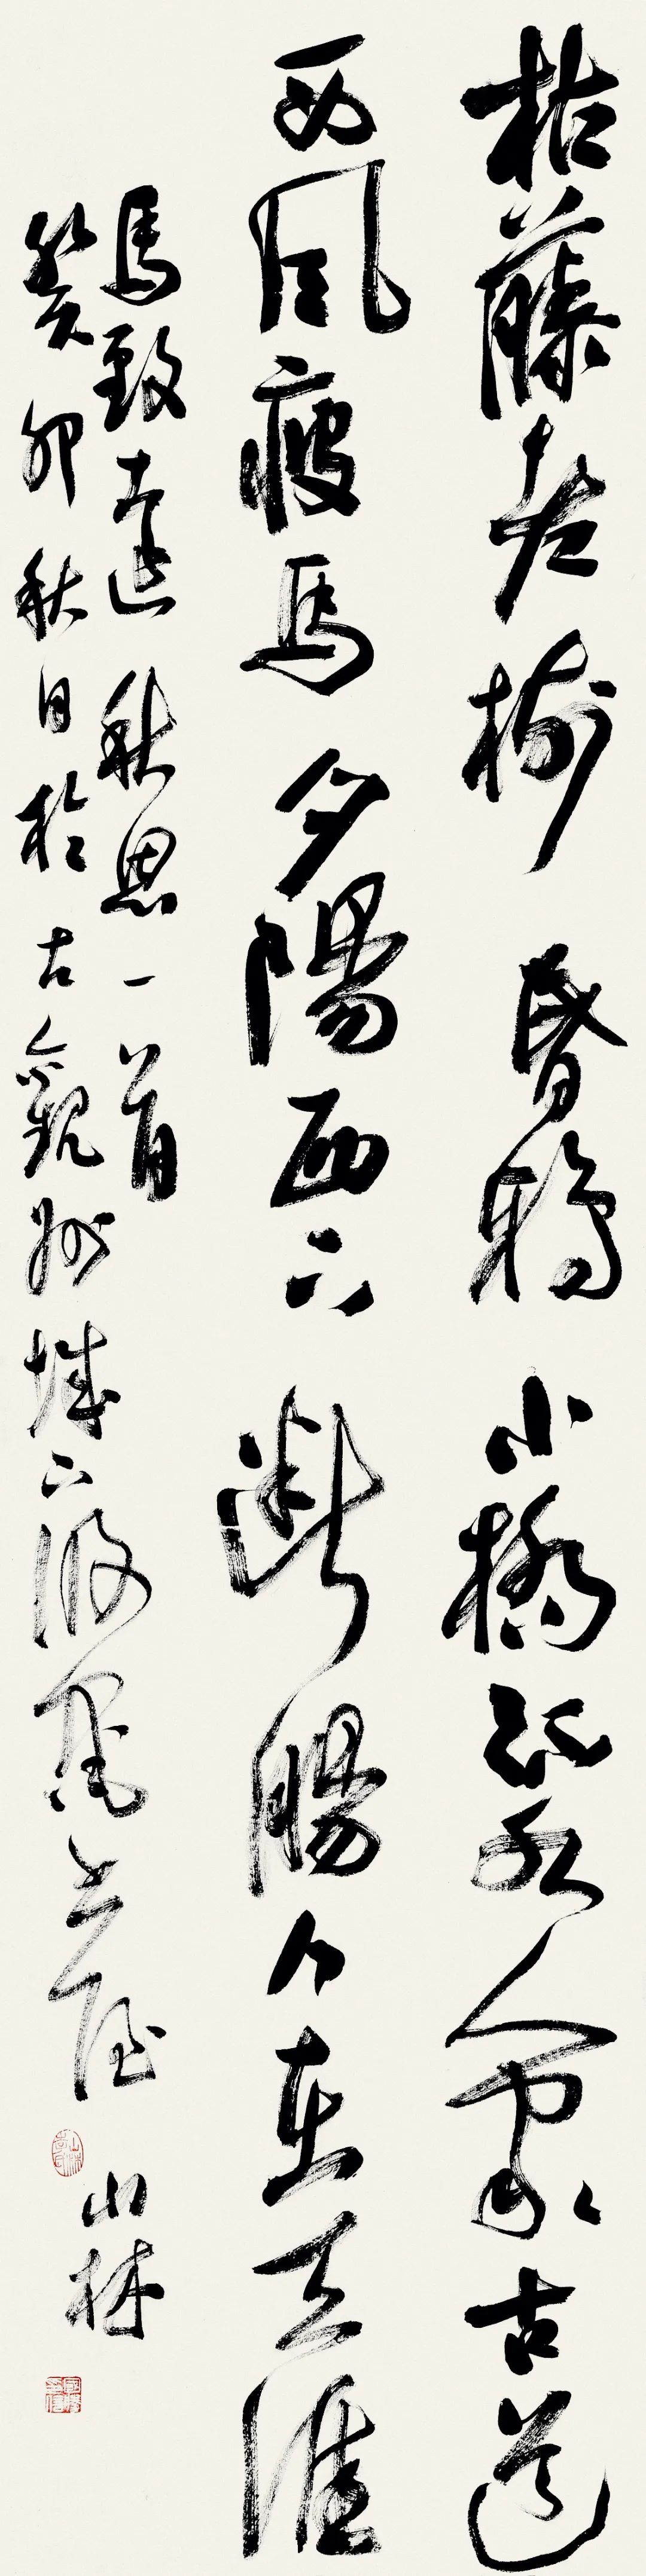 枯藤老樹昏鴉小橋流水人家古道
西風瘦馬夕陽西下斷腸人在天涯
馬致遠秋思一首
癸卯秋日於古觀州城下墨書屋
山林